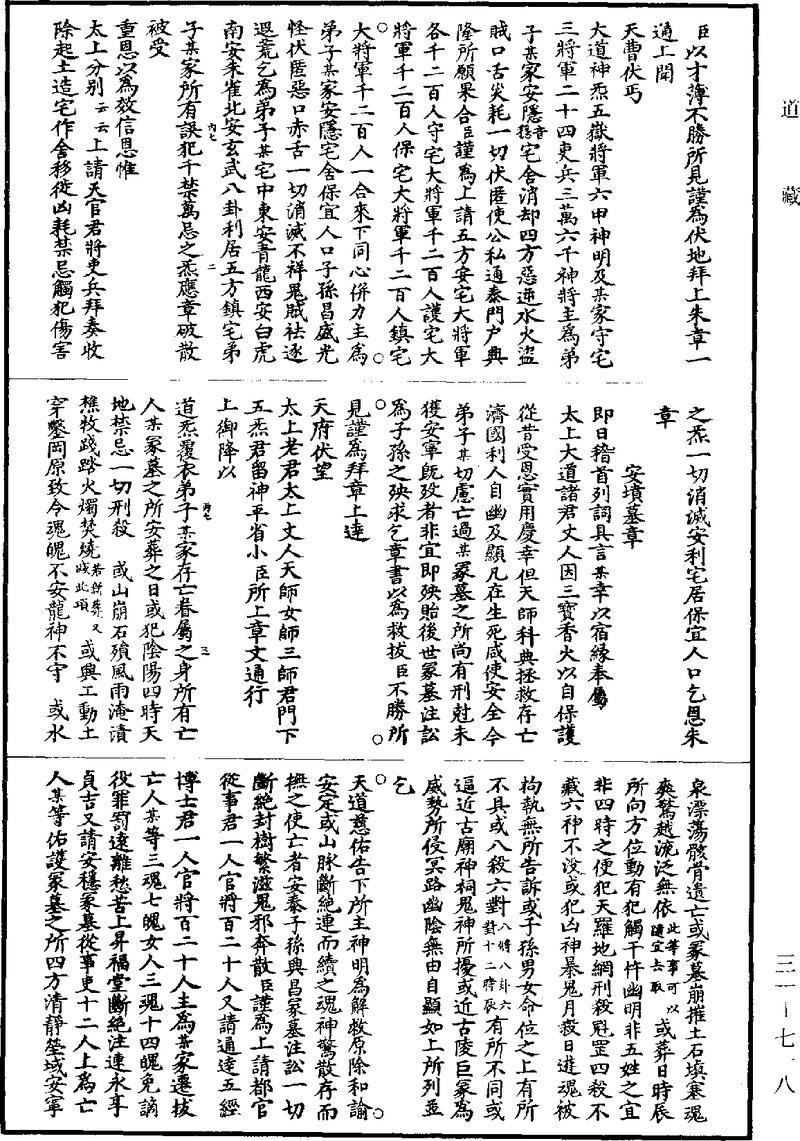 道藏
三一—七一八
臣以才薄不勝所見謹為伏地拜上朱章一
通上聞
天曹伏丐
大道神炁五嶽將軍六甲神明及某家守宅
三將軍二十四吏兵三萬六千神將主為弟
子某家安隱音穩宅舍消却四方惡逆水火盜
賊口舌災耗一切伏匿使公私通泰門戶興
隆所願果合臣謹為上請五方安宅大將軍
各千二百人守宅大將軍千二百人護宅大
將軍千二百人保宅大將軍千二百人鎮宅
大將軍千二百人一合來下同心併力主為
弟子某家安隱宅舍保宜人口子孫昌盛光
怪伏匿惡口赤舌一切消滅不祥鬼賊祛逐
遐荒乞為弟子某宅中東安青龍西安白虎
南安朱雀北安玄武八卦利居五方鎮宅弟
子某家所有誤犯千禁萬忌之炁應章破散
被受
重恩以為效信恩惟
太上分別云云上請天官君將吏兵拜奏收
除起土造宅作舍移徙凶耗禁忌觸犯傷害
之炁一切消滅安利宅居保宜人口乞恩朱
章
安墳墓章
即日稽首列詞具言某幸以宿緣奉屬
太上大道諸君丈人因三寶香火以自保護
從昔受恩實用慶幸但天師科典拯救存亡
濟國利人自幽及顯凡在生死咸使安全今
弟子某切慮亡過某冢墓之所尚有刑尅未
獲安寧既歿者非宜即殃貽後世冢墓注訟
為子孫之殃求乞章書以為救拔臣不勝所
見謹為拜章上達
天府伏望
太上老君太上丈人天師女師三師君門下
五炁君留神平省小臣所上章文通行
上御降以
道炁覆衣弟子某家存亡眷屬之身所有亡
人某冢墓之所安葬之日或犯陰陽四時天
地禁忌一切刑殺　或山崩石殞風雨淹漬
樵牧踐踏火燭焚燒若併葬又或此項或興工動土
穿鑿岡原致令魂魄不安龍神不守　或水
泉漂蕩骸骨遺亡或冢墓崩摧土石填塞魂
爽驚越流泛無依此等事可以隨宜去取或葬日時辰
所向方位動有犯觸干忤幽明非五姓之宜
非四時之便犯天羅地網刑殺魁罡四殺不
藏六神不沒或犯凶神暴鬼月殺日遊魂被
拘執無所告訴或子孫男女命位之上有所
不具或八殺六對八將八卦六對十二時辰有所不同或
逼近古廟神祠鬼神所擾或近古陵巨冢為
威勢所侵冥路幽陰無由自顯如上所列並
乞
天道慈佑告下所主神明為解救原除和諭
安定或山脉斷絕連而續之魂神驚散存而
撫之使亡者安泰子孫興昌冢墓注訟一切
斷絕封樹繁滋鬼邪奔散臣謹為上請都官
從事君一人官將百二十人又請通達五經
博士君一人官將百二十人主為某家遷拔
亡人某等三魂七魄女人三魂十四魄免謫
役罪罰遠離愁苦上昇福堂斷絕注連永享
貞吉又請安穩冢墓從事吏十二人上為亡
人某等佑護冢墓之所四方清靜塋域安寧